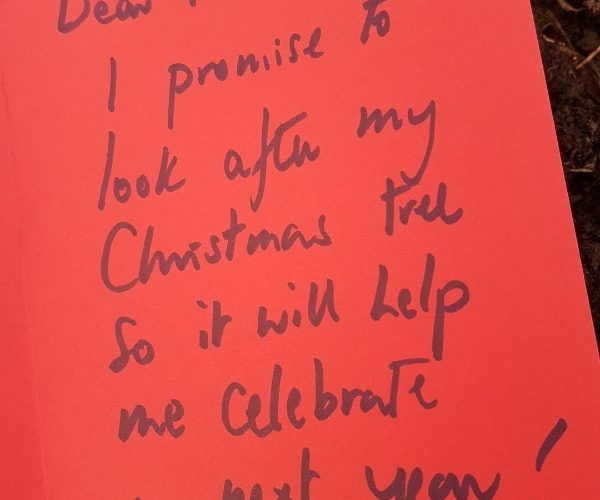 Dear
I promise to
look after my
Christmas tree
So it will help
me celebrate
next year!